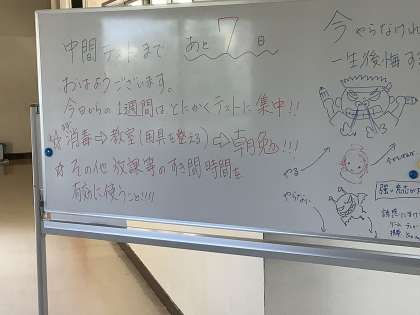 中間テストまで あと 7 日
おはようございます。
今日からの1週間はとにかくテストに集中!!
消毒⇒教室(用具を整える)⇒朝勉!!!
☆その他 放課等のすき間時間を
有効に使うこと!!!
今やらなけれ
一生後悔す
やる
やらない
強い意志が
誘惑に
ゲーム テレ